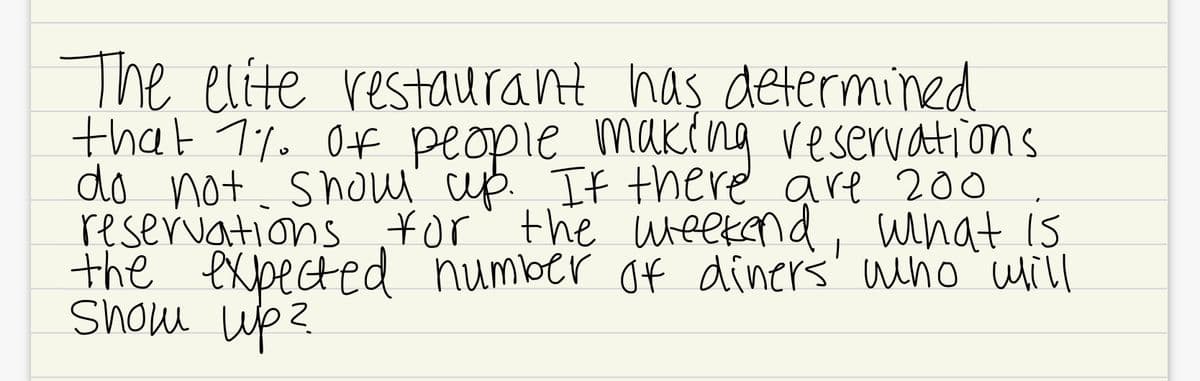 The elite restaurant has determined
that 7% of people making reservations
do not show up. If there are 200
reservations for the weekend, what is
the expected number of diners' who will
show up?